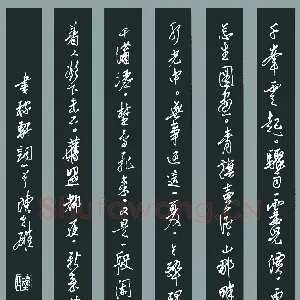 千峯雲起驟雨一霎兒價
怎生圖畫青旗賣酒山那畔
水光中無事過這一夏午醉醒
千瀟灑野鳥飛來又是一般閒
着人欲下未下舊盟都在新來莫
書稼軒詞一首陳雄
Shufawang.CN